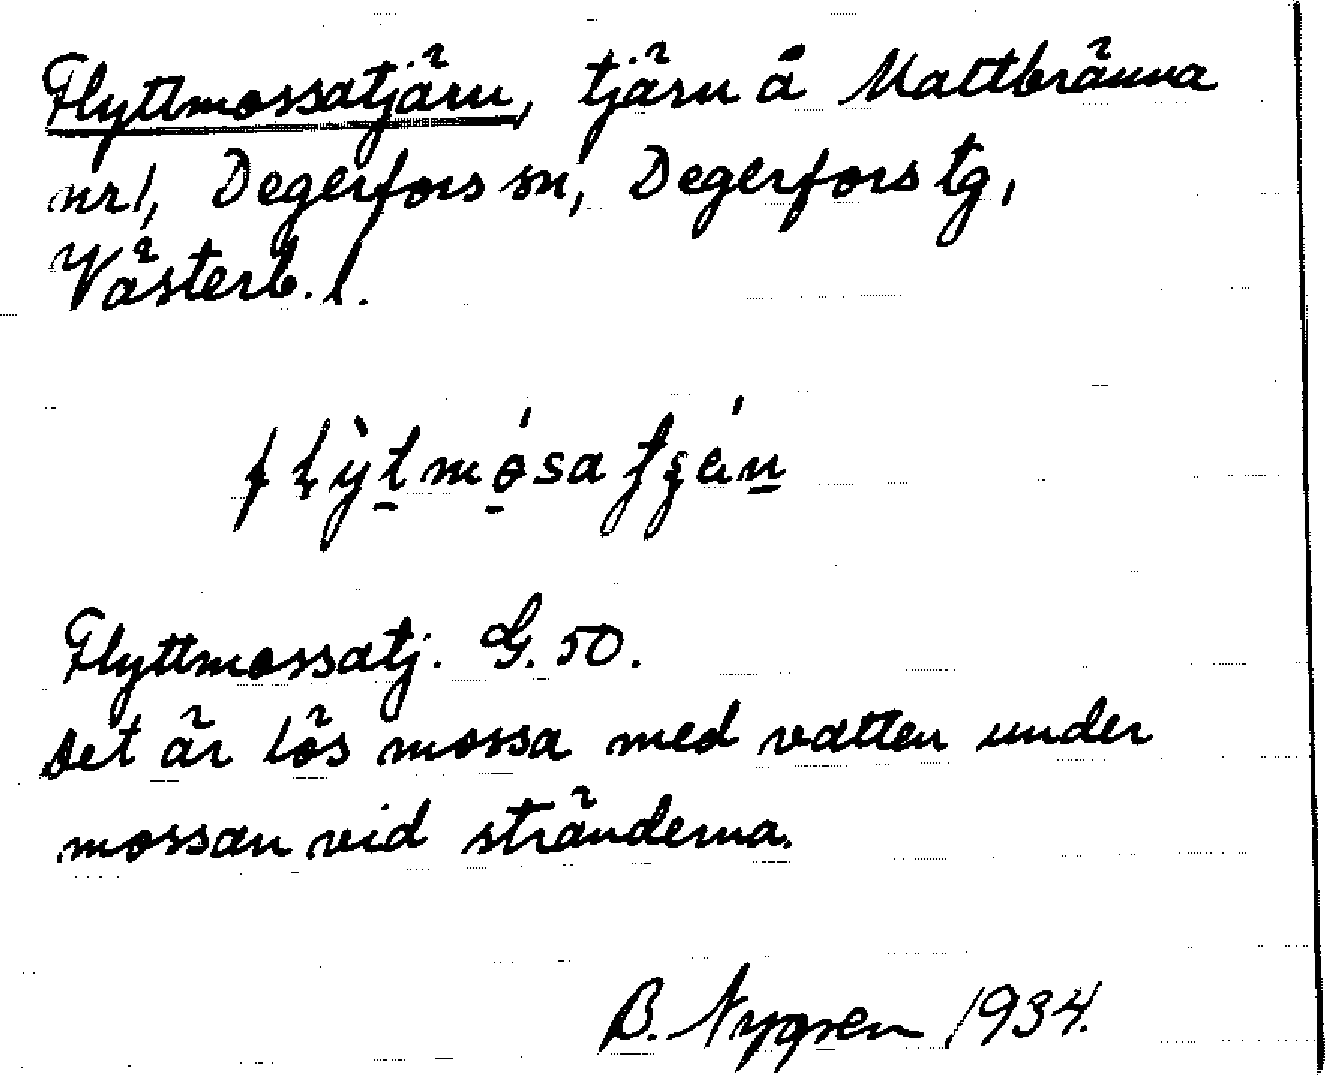 Flyttmossatjärn, tjärn å Mattbränna
nr 1, Degerfors sn, Degerfors tg,
Västerb. l.
Flyttmossatj. G. 50.
Det är lös mossa med vatten under
mossan vid stränderna.
B. Nygren 1934.